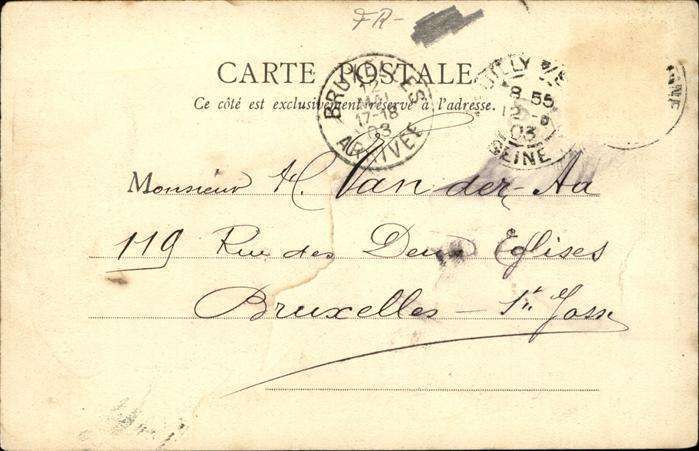 FR-
CARTE POSTALE
Ce côté est exclusivement réservé à l'adresse.
BRUXELLES
12
MAI
17-18
03
ARRIVEE
8 55
12
03
SEINE
Monsieur H. Van der Aa
119 Rue des Deux Eglises
Bruxelles - St. Josse